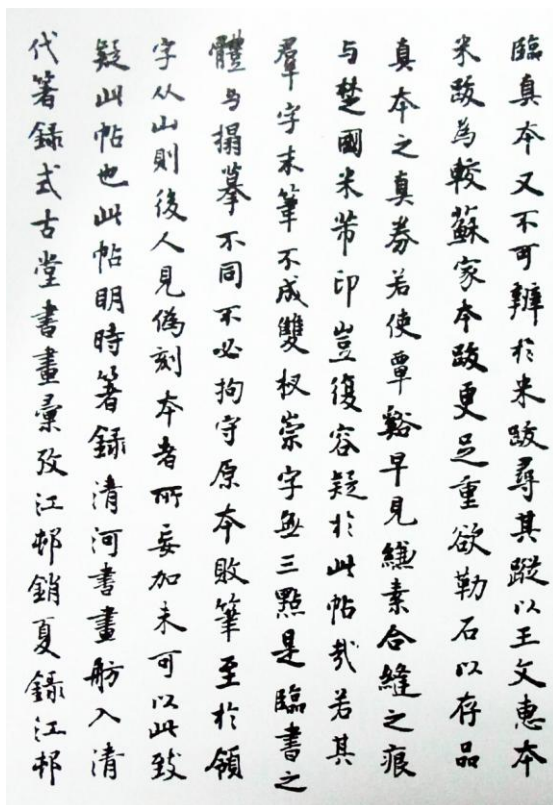 臨真本又不可辨於米跋尋其蹤以王文惠本
米跋為較蘇家本跋更足重欲勒石以存品
真本之真券若使覃谿早見縑素合縫之痕
与楚國米芾印豈復容疑於此帖哉若其
羣字末筆不成雙杈崇字無三點是臨書之
體与搨摹不同不必拘守原本敗筆至於領
字从山則後人見偽刻本者所妄加未可以此致
疑此帖也此帖明時箸錄清河書畫舫入清
代箸錄式古堂書畫彙攷江邨銷夏錄江邨